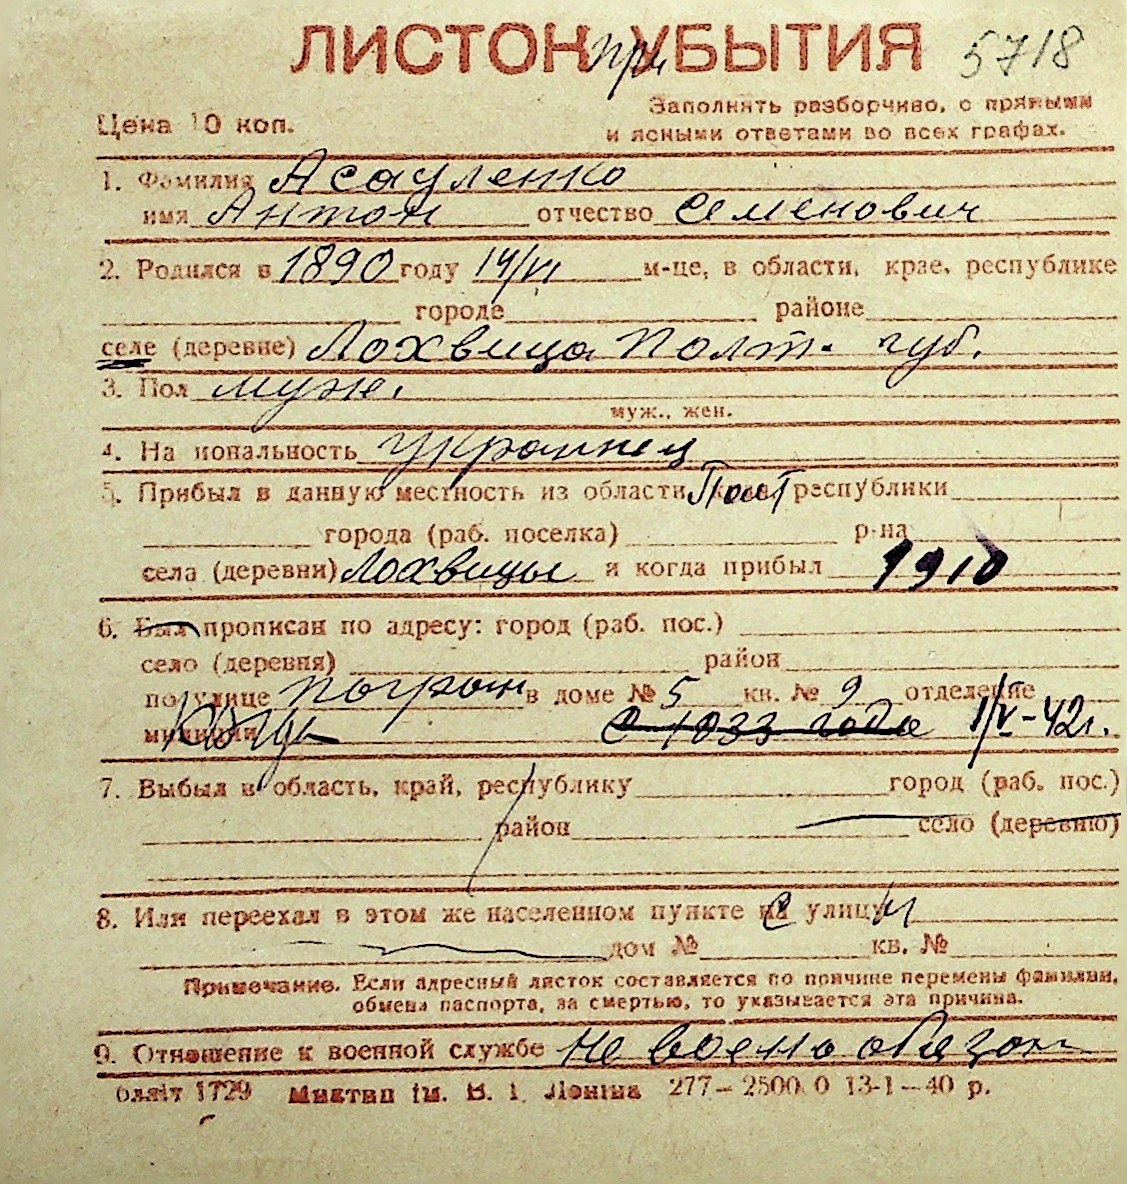 ЛИСТОК УБЫТИЯ при 5718
Цена 10 коп.
Заполнять разборчиво, с прямыми
и ясными ответами во всех графах.
1. Фамилия Асауленко
имя Антон отчество Семенович
2. Родился в 1890 году 14/VI м-це, в области, крае, республике
городе районе
селе (деревне) Лохвица Полт. губ.
3. Пол муж.
муж., жен.
4. Национальность украинец
5. Прибыл в данную местность из области, Полт республики
города (раб. поселка) р-на
села (деревни) Лохвицы и когда прибыл 1910
6. Был прописан по адресу: город (раб. пос.)
село (деревня) район
по улице Погран в доме № 5 кв. № 9 отделение
милиции С 1933 года 1/V-42г.
7. Выбыл в область, край, республику город (раб. пос.)
район село (деревню)
8. Или переехал в этом же населенном пункте на улицу
дом № кв. №
Примечание. Если адресный листок составляется по причине перемены фамилии,
обмена паспорта, за смертью, то указывается эта причина.
9. Отношение к военной службе не военнообязан
1729 ім. В. І. Леніна 277—2500.0 13-1—40 р.